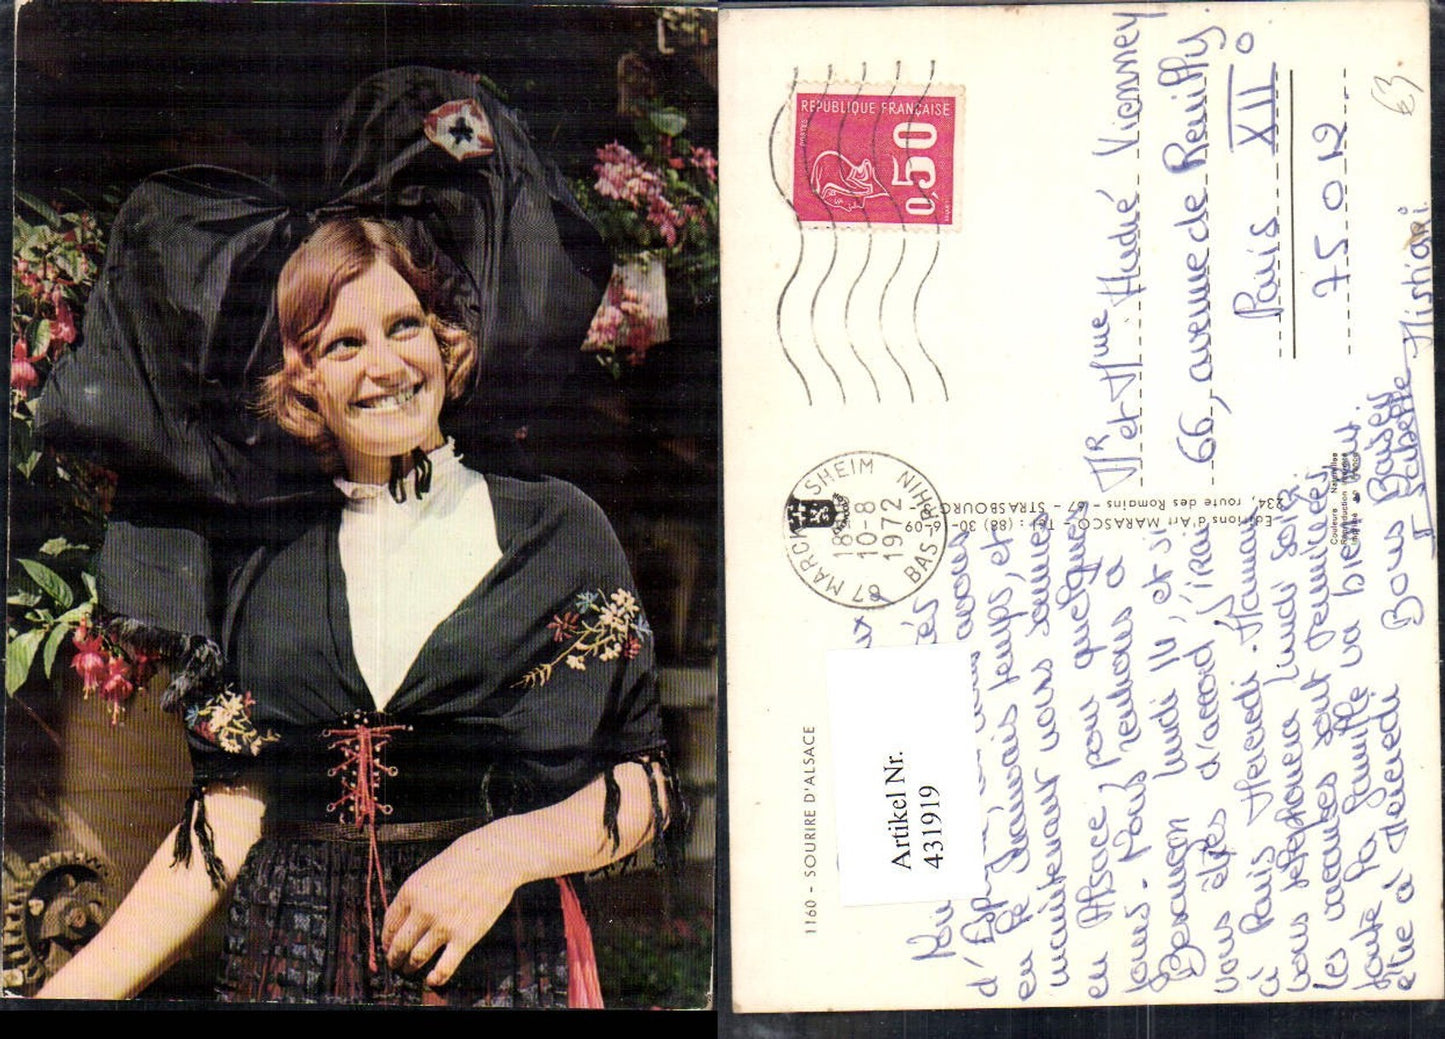 RÉPUBLIQUE FRANÇAISE
POSTES
0,50
67 MARCKOLSHEIM
18H
10-8
1972
BAS-RHIN
1160 - SOURIRE D'ALSACE
Artikel Nr.
4431919
Editions d'Art MARASCO - Tél : (88) 30-
234, route des Romains - 67 - STRASBOURG
Couleurs Naturelles
Reproduction
Mr et Mme André Vionney
66, avenue de Reuilly
Paris XIIº
75012
63
d'
en mauvais temps, et
maintenant nous sommes
en Alsace, pour quelques
jours. Nous rentrons à
Besançon lundi 14, et si
vous êtes d'accord, j'irai
à Paris Mercredi. Maman
vous téléphonera lundi soir.
Les vacances sont terminées,
toute la famille va bien
être à Mercredi
Bons Baisers